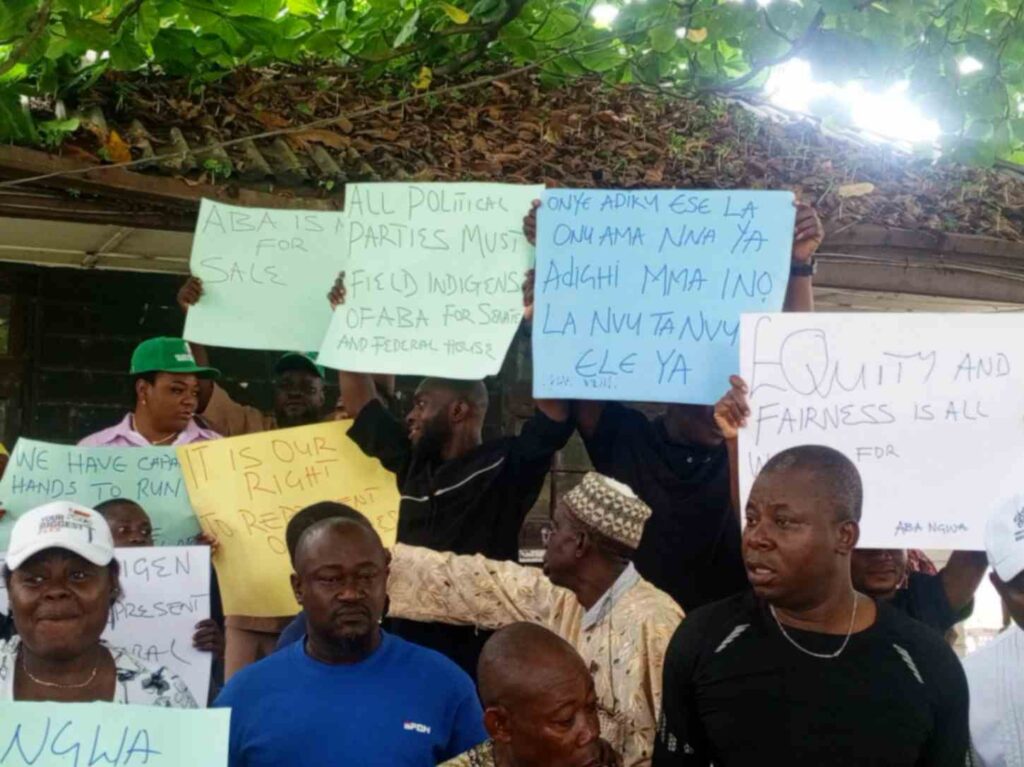 ABA IS
FOR
SALE
ALL POLITICAL
PARTIES MUST
FIELD INDIGENS
OF ABA FOR SENATE
AND FEDERAL HOUSE
ONYE ADIKU ESE LA
ONU AMA NNA YA
ADIGHI MMA INỌ
LA NVU TA NVU
ELE YA
EQUITY AND
FAIRNESS IS ALL
FOR
ABA NGWA
WE HAVE
HANDS TO RUN
IT IS OUR
RIGHT
TO
PRESENT
YOUR
BIGGEST
NGWA